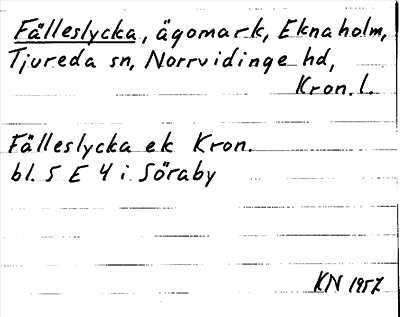 Fälleslycka, ägomark, Eknaholm,
Tjureda sn, Norrvidinge hd,
Kron. l.
Fälleslycka ek Kron.
bl. 5 E 4 i Söraby
KN 1957